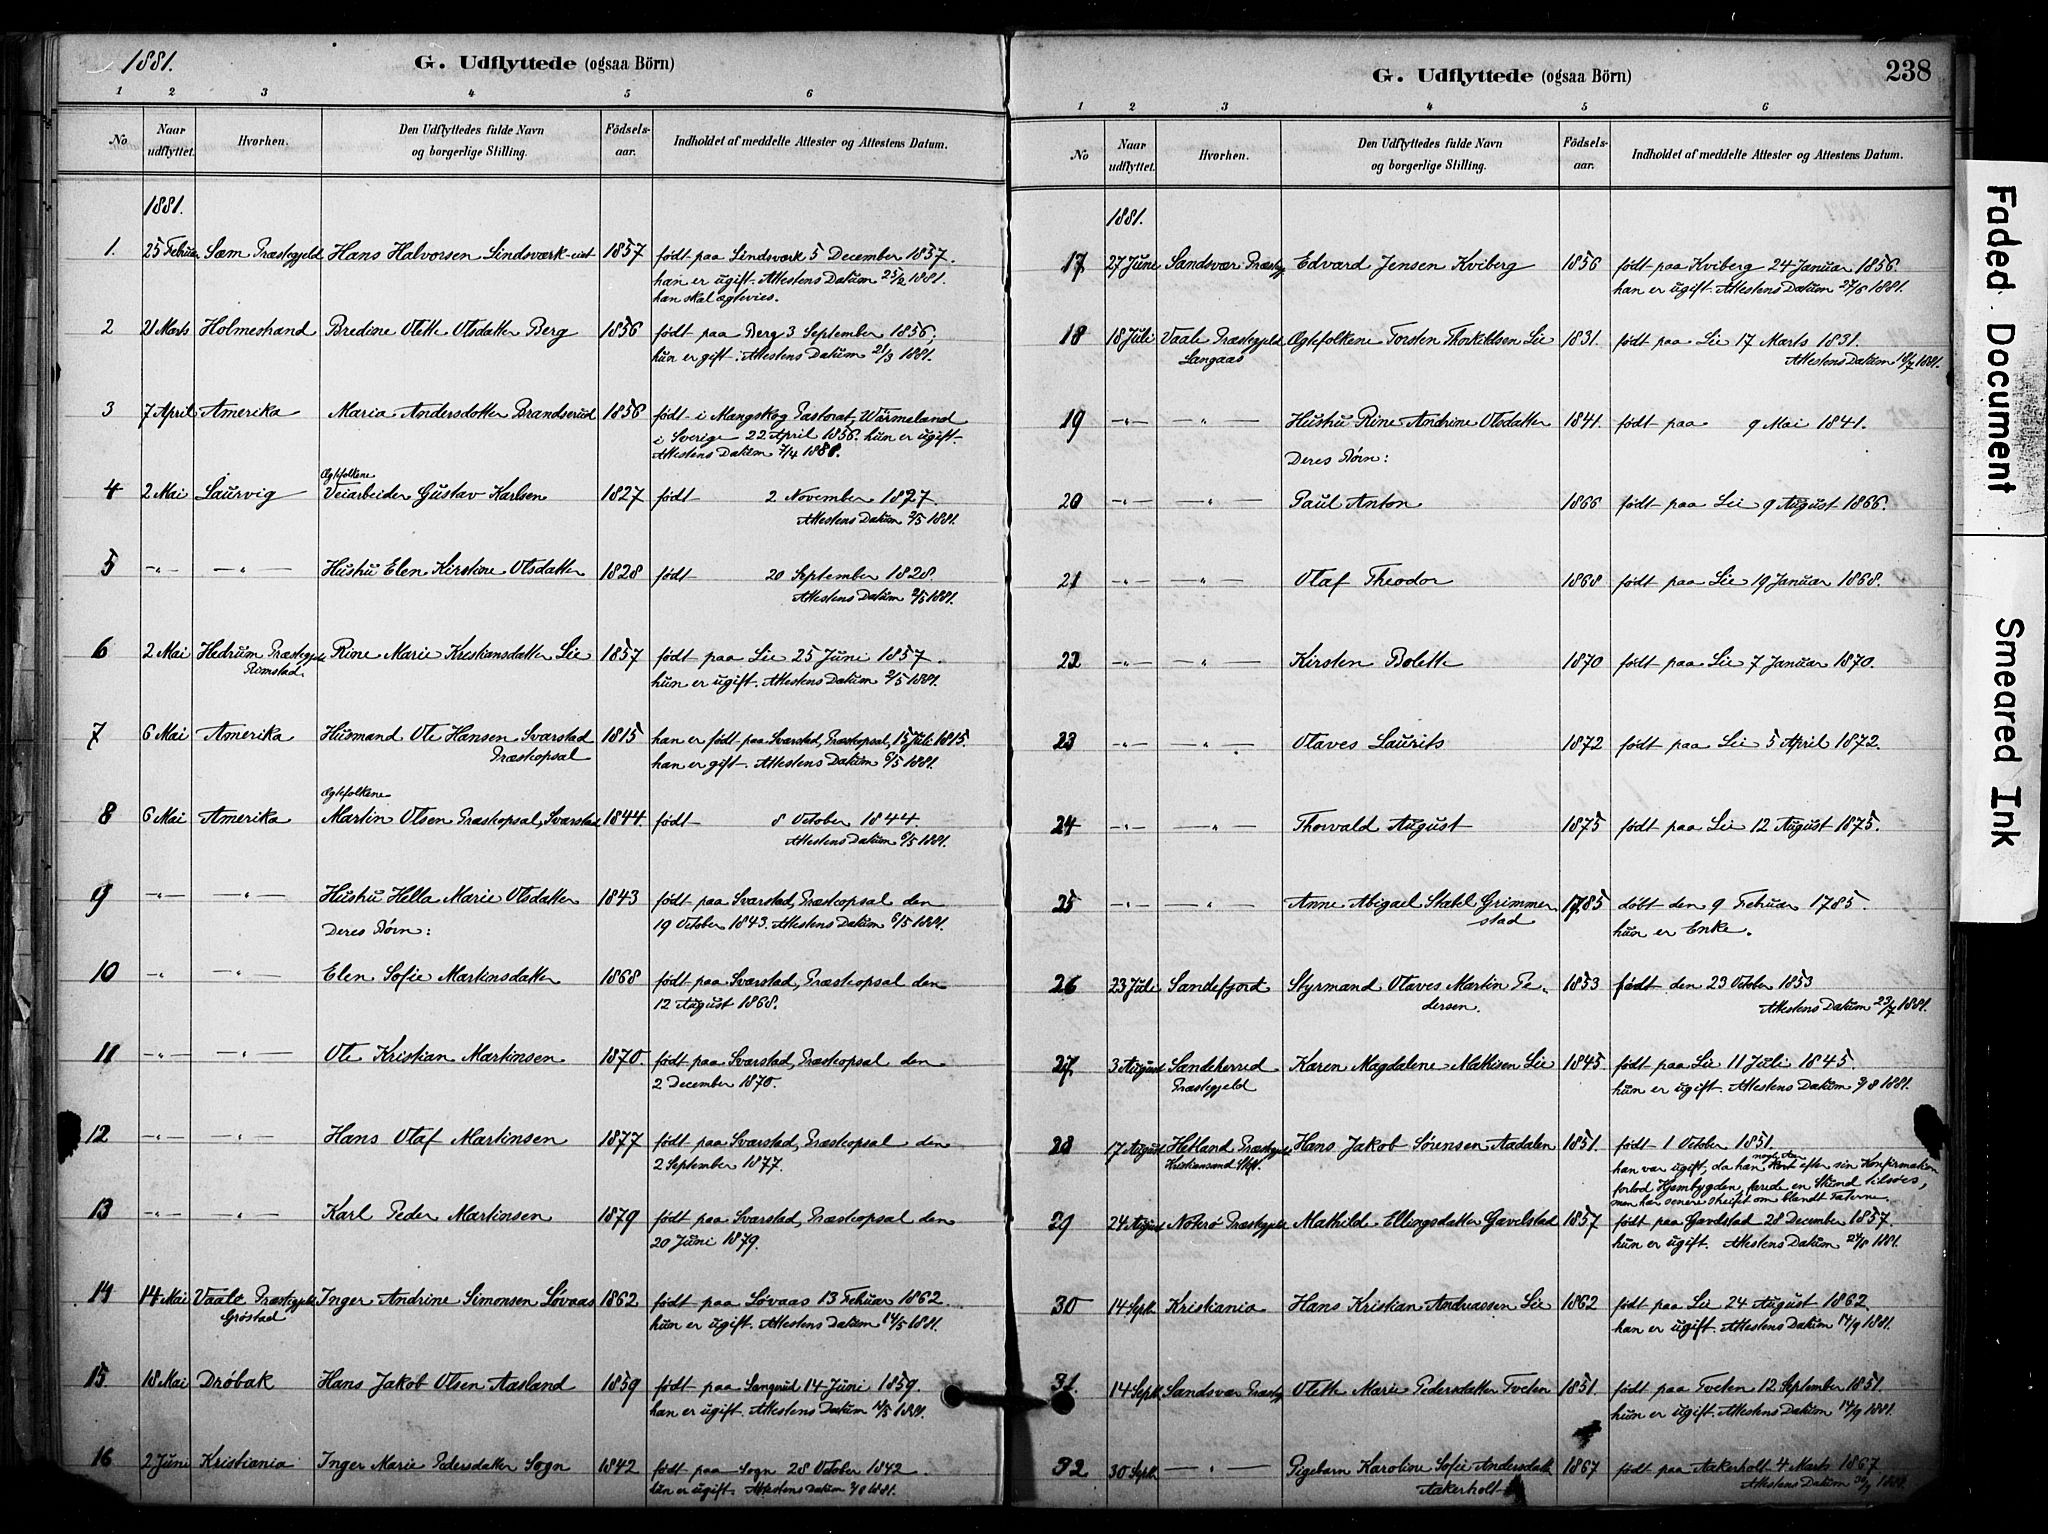 1881.
G. Udflyttede (ogsaa Börn)
1 2 3 4 5 6
No
Naar udflyttet.
Hvorhen.
Den Udflyttedes fulde Navn og borgerlige Stilling.
Födsels-aar.
Indholdet af meddelte Attester og Attestens Datum.
1881.
1. 25 Februar Sæm Præstegjeld Hans Halvorsen Lindsværk-eiet 1857 født paa Lindsværk 5 December 1857.
han er ugift. Attestens Datum 25/2 1881.
han skal ægtevies.
2 21 Marts Holmestrand Bredine Olette Olsdatter Berg 1856 født paa Berg 3 September 1856;
hun er gift. Attestens Datum 21/3 1881.
3 7 April Amerika Maria Andersdotter Brandserud 1856 født i Mangskog Pastorat, Wärmeland
i Sverige 22 April 1856. hun er ugift
Attestens Datum 7/4 1881.
Ægtefolkene
4 2 Mai Laurvig Veiarbeider Gustav Karlsen 1827 født 2 November 1827.
Attestens Datum 2/5 1881.
5 -"- -"- Hustru Elen Kirstine Olsdatter 1828 født 20 September 1828.
Attestens Datum 2/5 1881.
6 2 Mai Hedrum Præstegjeld Rine Marie Kristiansdatter Lie 1857 født paa Lie 25 Juni 1857.
Rimstad. hun er ugift. Attestens Datum 2/5 1881.
7 6 Mai Amerika Husmand Ole Hansen Svarstad 1815 han er født paa Svarstad, Præstopsal, 15 Juli 1815.
Præstopsal han er gift. Attestens Datum 6/5 1881.
Ægtefolkene
8 6 Mai Amerika Martin Olsen Præstopsal, Svarstad 1844. født 8 October 1844
Attestens Datum 6/5 1881.
9 -"- -"- Hustru Hella Marie Olsdatter 1843 født paa Svarstad, Præstopsal den
Deres Børn: 19 October 1843. Attestens Datum 6/5 1881.
10 -"- -"- Elen Sofie Martinsdatter 1868 født paa Svarstad, Præstopsal den
12 August 1868.
11 -"- -"- Ole Kristian Martinsen 1870. født paa Svarstad, Præstopsal den
2 December 1870.
12 -"- -"- Hans Olaf Martinsen 1877 født paa Svarstad, Præstopsal den
2 September 1877.
13 -"- -"- Karl Peder Martinsen 1879 født paa Svarstad, Præstopsal den
20 Juni 1879.
14 14 Mai Vaale Præstegjeld Inger Andrine Simonsen Løvaas 1862 født paa Løvaas 13 Februar 1862.
Grøstad hun er ugift. Attestens Datum 14/5 1881.
15. 18 Mai Drøbak Hans Jakob Olsen Aasland 1859 født paa Langrud 14 Juni 1859.
han er ugift. Attestens Datum 1881.
16 2 Juni Kristiania Inger Marie Pedersdatter Sogn 1842 født paa Sogn 28 October 1842.
hun er ugift. Attestens Datum 1881.
G. Udflyttede (ogsaa Börn)
238
1 2 3 4 5 6
No
Naar udflyttet.
Hvorhen.
Den Udflyttedes fulde Navn og borgerlige Stilling.
Födsels-aar.
Indholdet af meddelte Attester og Attestens Datum.
1881.
17 27 June Sandsvær Præstg. Edvard Jensen Kviberg 1856 født paa Kviberg 24 Januar 1856.
han er ugift. Attestens Datum 1881.
18 18 Juli Vaale Præstegjeld Ægtefolkene Torsten Thorkildsen Lie 1831. født paa Lie 17 Marts 1831.
Langaas Attestens Datum 18/7 1881.
19 -"- -"- Hustru Rine Andrine Olsdatter 1841. født paa 9 Mai 1841.
Deres Børn:
20 -"- -"- Paul Anton 1866 født paa Lie 9 August 1866.
21 -"- -"- Olaf Theodor 1868 født paa Lie 19 Januar 1868.
22 -"- -"- Kirsten Bolette 1870 født paa Lie 7 Januar 1870.
23 -"- -"- Olaves Laurits 1872 født paa Lie 5 April 1872.
24 -"- -"- Thorvald August 1875 født paa Lie 12 August 1875.
25 -"- -"- Anne Abigael Stabel Grimmer 1785 døbt den 9 Februar 1785.
stad hun er Enke.
26 23 Juli Sandefjord Styrmand Olaves Martin Pe- 1853 født den 23 October 1853
dersen. Attestens Datum 23/7 1881.
27. 3 August Sandeherred Karen Magdalene Mathisen Lie 1845 født paa Lie 11 Juli 1845.
Præstegjeld hun er ugift. Attestens Datum 3/8 1881.
28 17 August Hetland Præstegjeld Hans Jakob Sørensen Aadalen 1851. født 1 October 1851.
Kristiansand Stift. han var ugift, da han kort efter sin Konfirmation
forlod Hjembygden, farede en Stund tilsøes,
men har senere streifet om blandt Taterne.
29 24 August Notrø Præstegjeld Mathilde Ellingsdatter Gavelstad 1857 født paa Gavelstad 28 December 1857.
hun er ugift. Attestens Datum 24/8 1881.
30 14 Septb. Kristiania Hans Kristian Andreassen Lie 1862 født paa Lie 24 August 1862.
han er ugift. Attestens Datum 14/9 1881.
31. 14 Septb. Sandsvær Præstg. Olette Marie Pedersdatter Tveten 1851. født paa Tveten 12 September 1851.
hun er ugift. Attestens Datum 14/9 1881.
32. 30 Septb. -"- Pigebarn Karoline Sofie Andersdatter 1867 født paa Aakerholt 4 Marts 1867
Aakerholt Attestens Datum 30/9 1881.
Faded Document
Smeared Ink